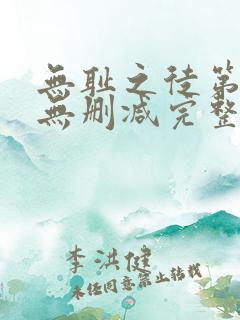 無耻之徒第
無删减完整
李洪健
未经同意禁止转载